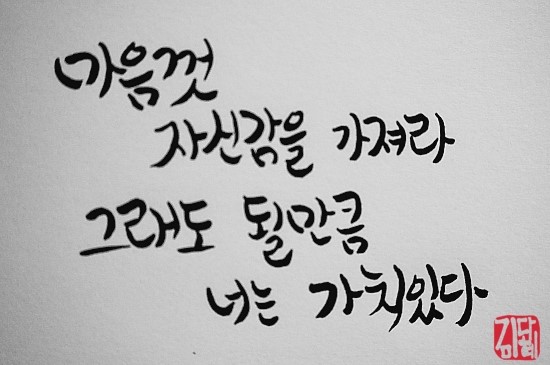 마음껏
자신감을 가져라
그래도 될만큼
너는 가치있다